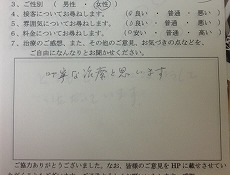 3、ご性別 ( 男性 ・ 女性 )
4、接客についてお尋ねします。 (良い ・ 普通 ・ 悪い )
5、雰囲気についてお尋ねします。 (良い ・ 普通 ・ 悪い )
6、料金についてお尋ねします。 (安い ・ 普通 ・ 高い )
7、治療のご感想、また、その他のご意見、お気づきの点などを、
ご自由になんなりとお聞かせください。
丁寧な治療と思います
ご協力ありがとうございました。なお、皆様のご意見をHPに載せさせてい